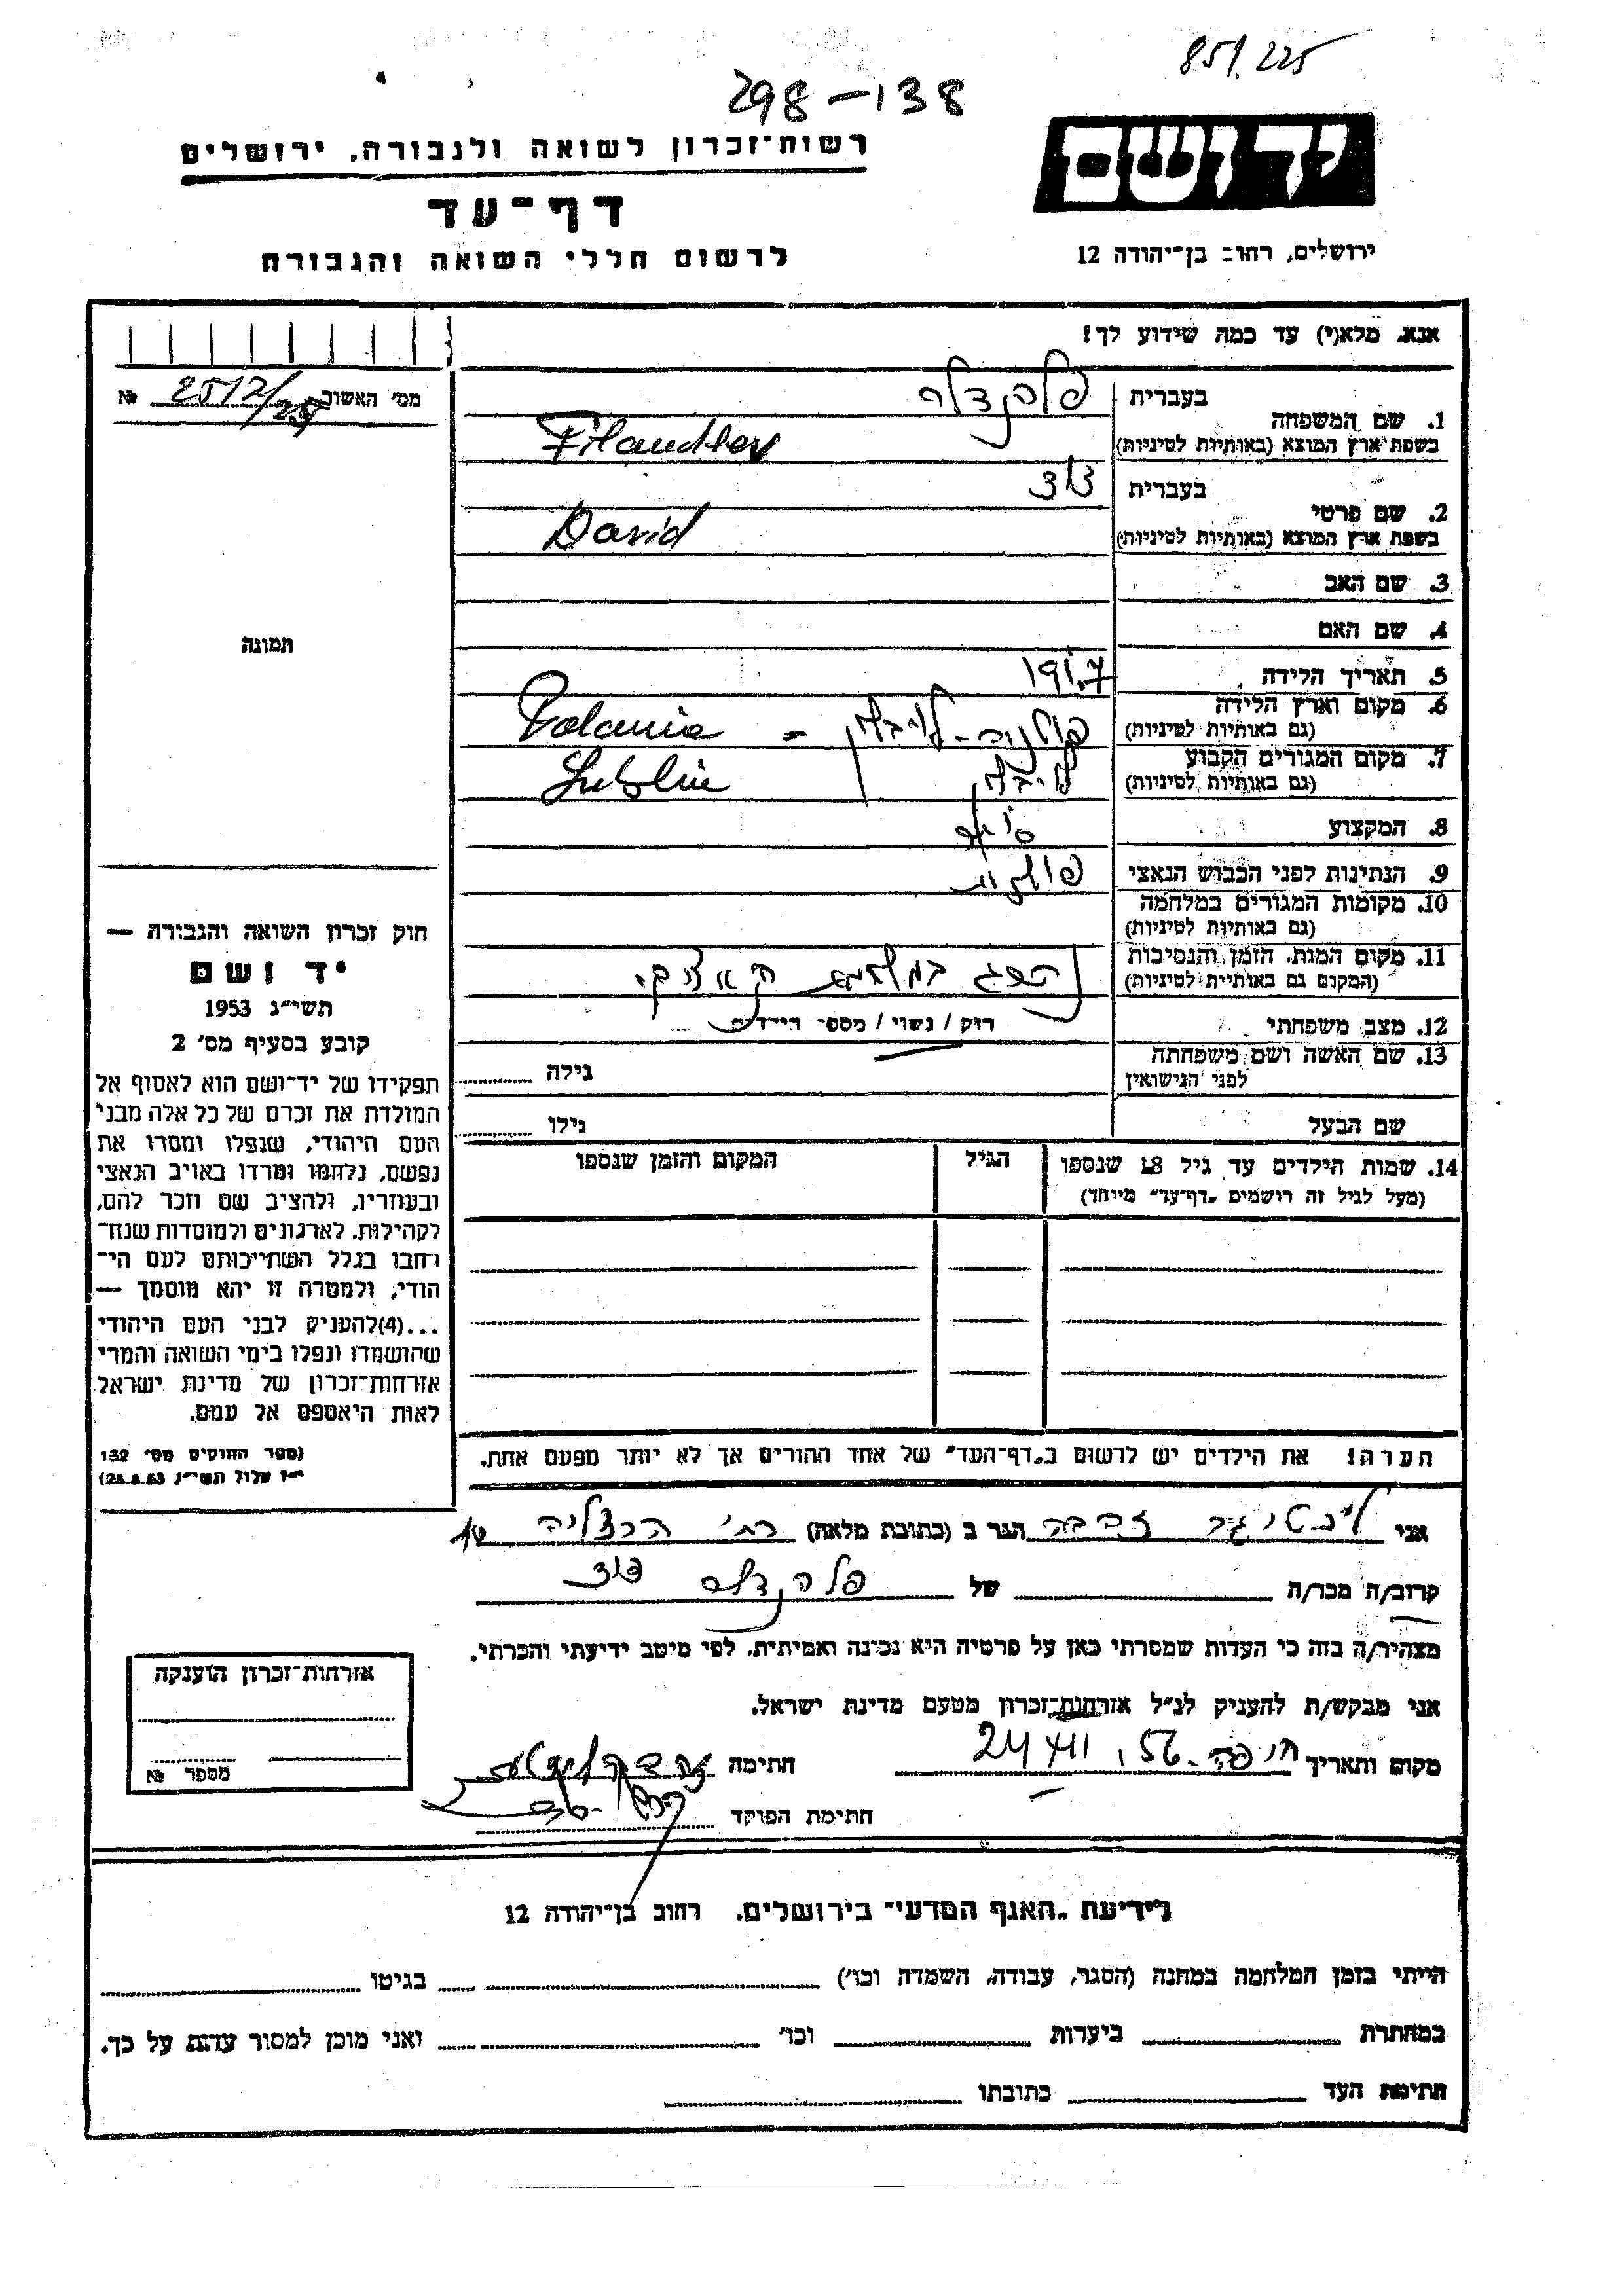 851.225
298-138
יד ושם
רשות־זכרון לשואה ולגבורה, ירושלים
דף־עד
לרשום חללי השואה והגבורה
ירושלים, רחוב בן־יהודה 12
אנא, מלא(י) עד כמה שידוע לך!
מס' האשור 2512/25 №
בעברית פלהנדלר
1. שם המשפחה
בשפת ארץ המוצא (באותיות לטיניות) Flaudler
בעברית דוד
2. שם פרטי
בשפת ארץ המוצא (באותיות לטיניות) David
3. שם האב
4. שם האם
תמונה
5. תאריך הלידה 1917
6. מקום וארץ הלידה פולניה - לובלין - Polania
(גם באותיות לטיניות)
7. מקום המגורים הקבוע לובלין Lublin
(גם באותיות לטיניות)
8. המקצוע
9. הנתינות לפני הכבוש הנאצי פולנית
10. מקומות המגורים במלחמה
(גם באותיות לטיניות)
11. מקום המות, הזמן והנסיבות נהרג במלחמה
(המקום גם באותיית לטיניות)
12. מצב משפחתי רוק / נשוי / מספר הילדים
13. שם האשה ושם משפחתה
לפני הנישואין
גילה
שם הבעל גילו
חוק זכרון השואה והגבורה —
יד ושם
תשי״ג 1953
קובע בסעיף מס' 2
תפקידו של יד־ושם הוא לאסוף אל
המולדת את זכרם של כל אלה מבני
העם היהודי, שנפלו ומסרו את
נפשם, נלחמו ומרדו באויב הנאצי
ובעוזריו, ולהציב שם וזכר להם,
לקהילות, לארגונים ולמוסדות שנח־
רחבו בגלל השתייכותם לעם הי־
הודי; ולמטרה זו יהא מוסמך —
...(4)להעניק לבני העם היהודי
שהושמדו ונפלו בימי השואה והמרי
אזרחות־זכרון של מדינת ישראל
לאות היאספם אל עמם.
(ספר החוקים מס' 132
י״ז אלול תשי״ג 28.8.53)
14. שמות הילדים עד גיל 18 שנספו הגיל המקום והזמן שנספו
(מעל לגיל זה רושמים „דף־עד״ מיוחד)
הערה! את הילדים יש לרשום ב„דף־העד״ של אחד ההורים אך לא יותר מפעם אחת.
אני זהבה הגר ב (כתובת מלאה) רח' הרצליה
קרוב/ה מכר/ה של פלהנדלר דוד
מצהיר/ה בזה כי העדות שמסרתי כאן על פרטיה היא נכונה ואמיתית, לפי מיטב ידיעתי והכרתי.
אני מבקש/ת להעניק לנ״ל אזרחות־זכרון מטעם מדינת ישראל.
מקום ותאריך חיפה 24 XII 56 חתימה
חתימת הפוקד
אזרחות־זכרון הוענקה
מספר №
לידיעת „האגף המדעי״ בירושלים, רחוב בן־יהודה 12
הייתי בזמן המלחמה במחנה (הסגר, עבודה, השמדה וכו') בגיטו
במחתרת ביערות וכו' ואני מוכן למסור עדות על כך.
חתימת העד כתובתו